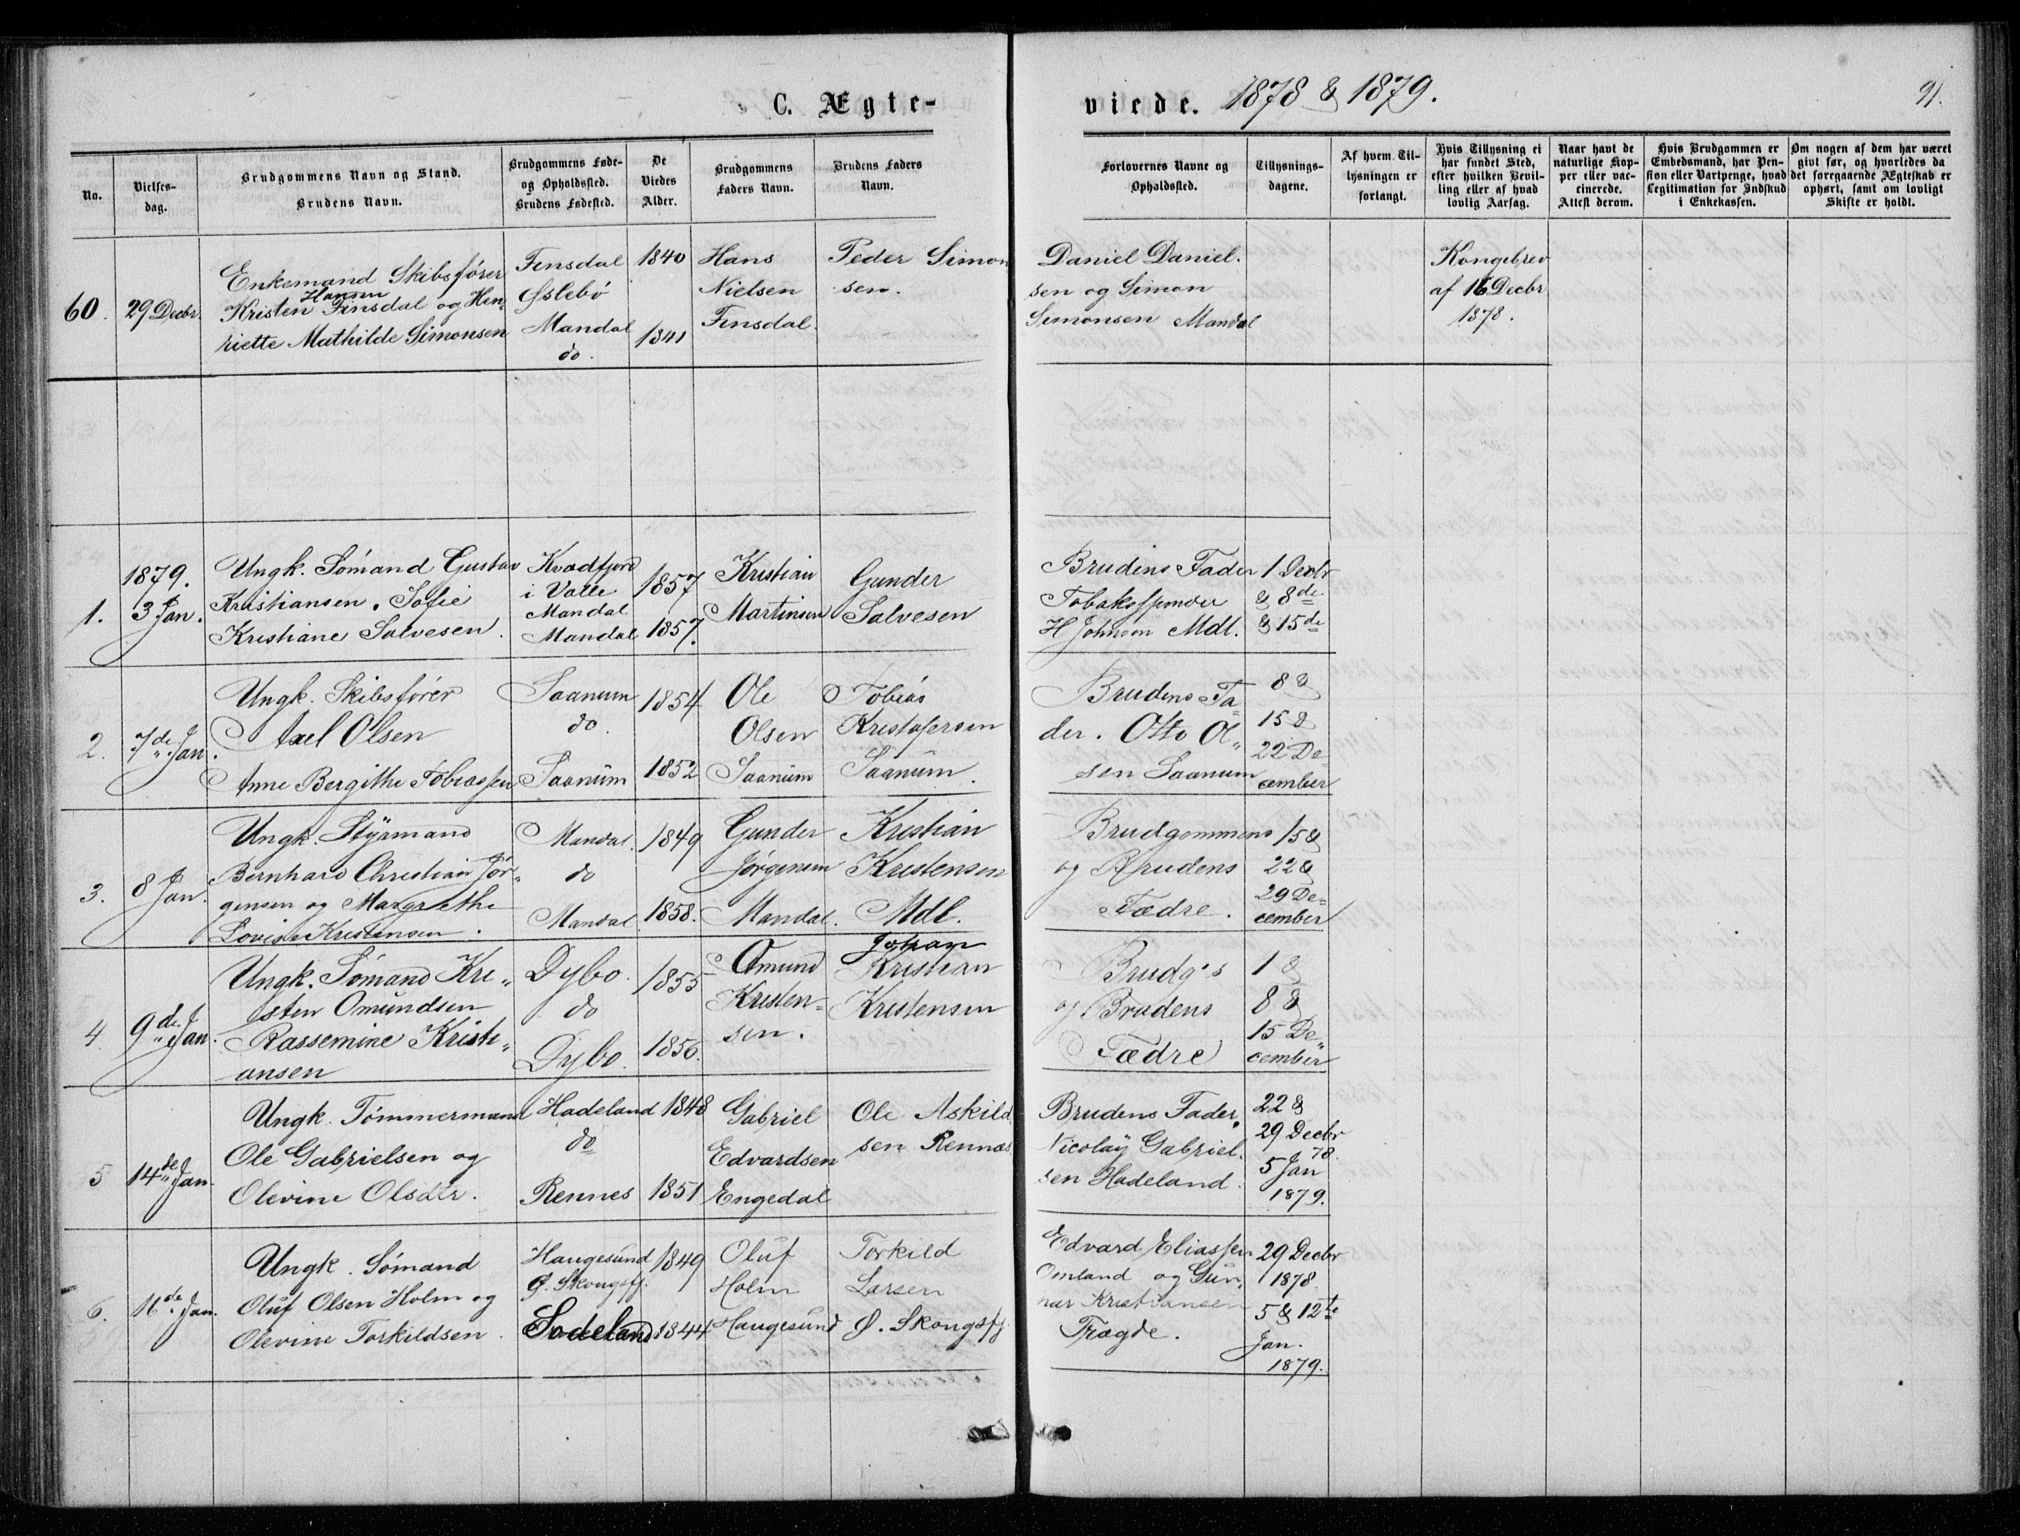 C. Ægte-
viede. 1878 & 1879.
91.
No.
Vielses-
dag.
Brudgommens Navn og Stand.
Brudens Navn.
Brudgommens Føde-
og Opholdssted.
Brudens Fødested.
De
Viedes
Alder.
Brudgommens
Faders Navn.
Brudens Faders
Navn.
Forlovernes Navne og
Opholdssted.
Tillysnings-
dagene.
Af hvem Til-
lysningen er
forlangt.
Hvis Tillysning ei
har fundet Sted,
efter hvilken Bevil-
ling eller af hvad
lovlig Aarsag.
Naar havt de
naturlige Kop-
per eller vac-
cinerede.
Attest derom.
Hvis Brudgommen er
Embedsmand, har Pen-
sion eller Vartpenge, hvad
Legitimation for Indskud
i Enkekassen.
Om nogen af dem har været
givt før, og hvorledes da
det foregaaende Ægteskab er
ophørt, samt om lovligt
Skifte er holdt.
60.
29 Decbr.
Enkemand Skibsfører
Hansen
Kristen Finsdal og Hen-
riette Mathilde Simonsen
Finsdal
Øslebø
Mandal
do.
1840
1841
Hans
Nielsen
Finsdal.
Peder Simon
sen.
Daniel Daniel.
sen og Simon
Simonsen Mandal
Kongebrev
af 16 Decbr
1878.
1.
1879.
3 Jan.
Ungk. Sømand Gustav
Kristiansen. Sofie
Kristiane Salvesen.
Kvadfjord
i Valle
Mandal
Mandal
1857
1857.
Kristian
Martinsen
Gunder
Salvesen
Brudens Fader
Tobaksspinder
H Johnsen Mdl.
1 Decbr
& 8de
& 15de
2.
7de Jan.
Ungk. Skibsfører
Axel Olsen
Anne Bergithe Tobiassen
Saanum
do.
Saanum
1854
1852
Ole
Olsen
Saanum
Tobias
Kristofersen
Saanum.
Brudens Fa-
der. Otto Ol-
sen Saanum
8 &
15 &
22 De
cember
3.
8 Jan.
Ungk. Styrmand
Bernhard Christian Jør-
gensen og Margrethe
Lovise Kristensen.
Mandal.
do
Mandal.
1849
1858.
Gunder
Jørgensen
Mandal.
Kristian
Kristensen
Mdl.
Brudgommens
og Brudens
Fædre.
15 &
22 &
29 De-
cember
4.
9de Jan.
Ungk. Sømand Kri-
sten Omundsen
Rassemine Kristi-
ansen
Dybo.
do
Dybo.
1855
1856.
Omund
Kristen-
sen.
Johan
Kristian
Kristensen
Brudg's
og Brudens
Fædre
1 &
8 &
15 De-
cember
5
14de Jan.
Ungk. Tømmermand
Ole Gabrielsen og
Olevine Olsdtr.
Hadeland
do
Rennes
1848
1851
Gabriel
Edvardsen
Engedal
Ole Askild
sen Rennæs
Brudens Fader,
Nicolay Gabriel.
sen Hadeland.
22 &
29 Decbr
78.
5 Jan
1879.
6.
16de Jan.
Ungk. Sømand
Oluf Olsen Holm og
Olevine Torkildsen.
Haugesund
Ø. Skongsfj.
Sodeland
1849
1844
Oluf
Holm
Haugesund
Torkild
Larsen
Ø. Skongsfj.
Edvard Eliassen
Omland og Gun-
nar Kristiansen
Trægde.
29 Decbr
1878
5 & 12te
Jan.
1879.